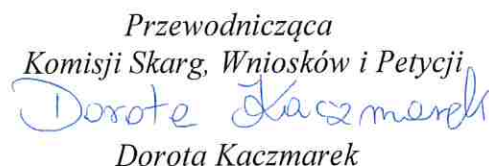 Przewodnicząca
Komisji Skarg, Wniosków i Petycji
Dorota Kaczmarek
Dorota Kaczmarek